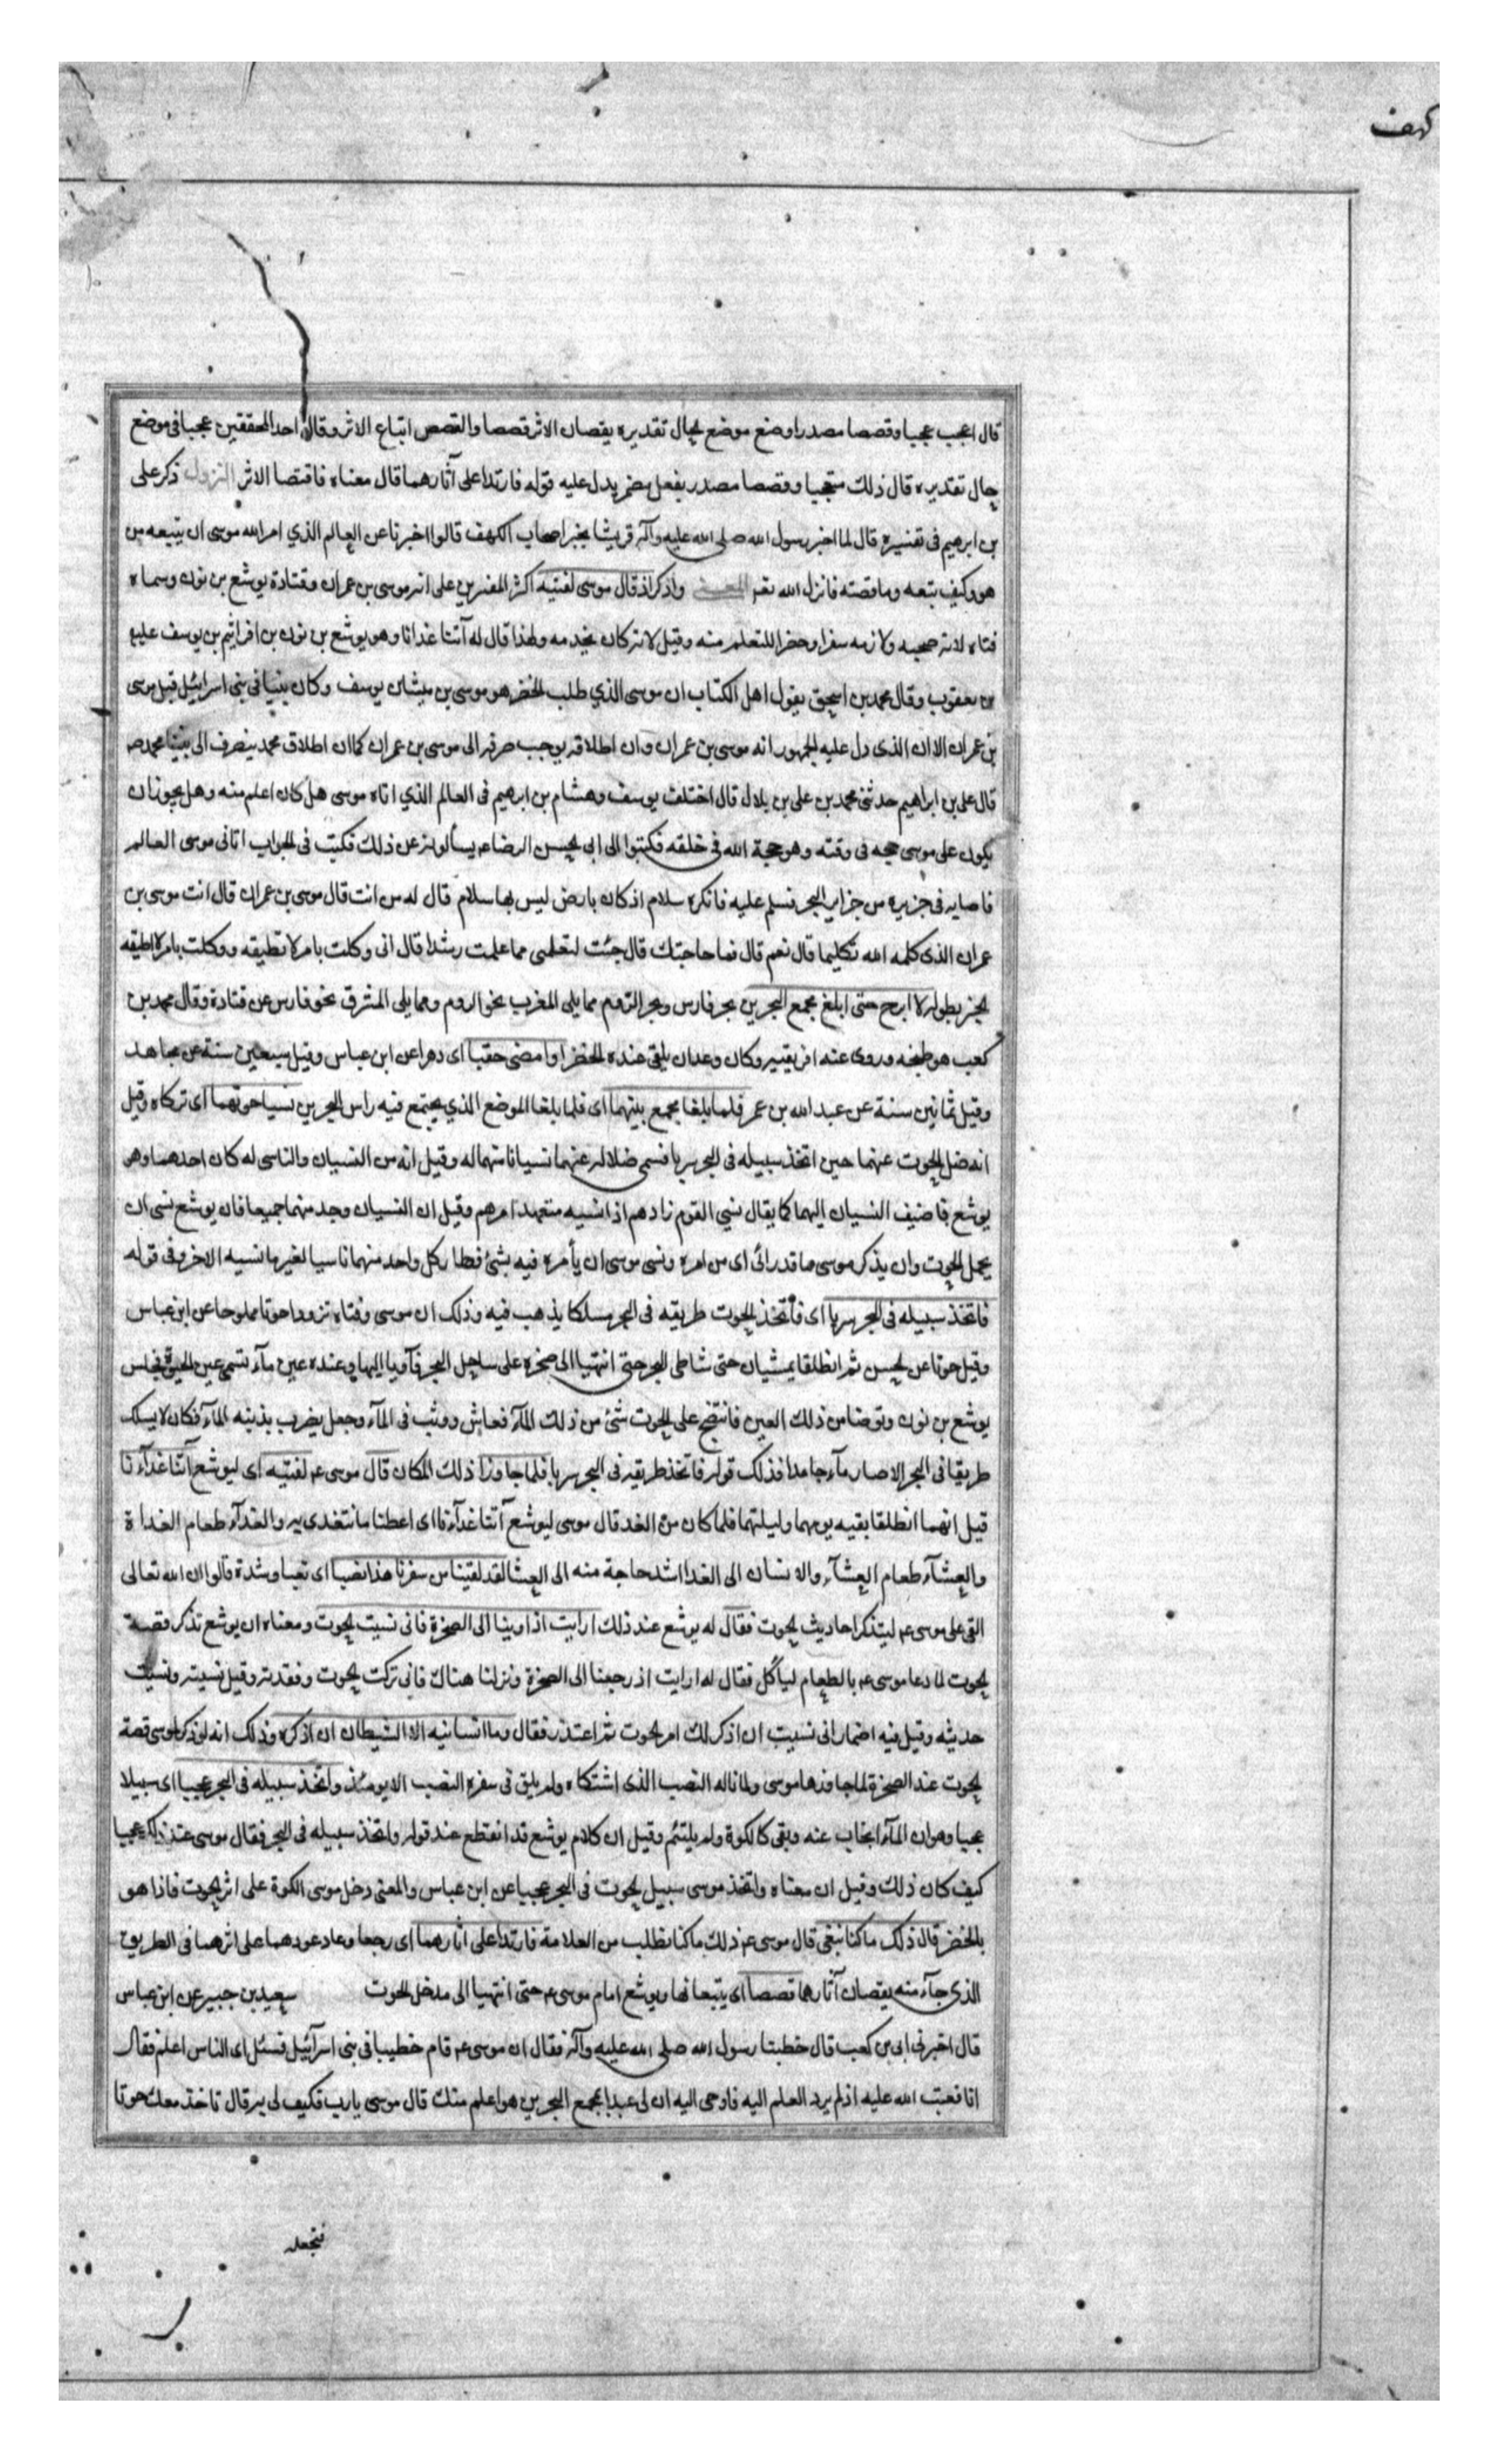 كهف
قال اعجب عجبا وقصصا مصدرا وضع موضع الحال تقديره يقصان الاثر قصصا والقصص اتباع الاثر وقال احد المحققين عجبا فى موضع
حال تقديره قال ذلك متعجبا وقصصا مصدر بفعل مضمر يدل عليه قوله فارتدا على آثارهما قال معناه فاقتصا الاثر النزول ذكر على
بن ابرهيم فى تفسيره قال لما اخبر رسول الله صلى الله عليه وآله قريشا بخبر اصحاب الكهف قالوا اخبرنا عن العالم الذي امر الله موسى ان يتبعه من
هو وكيف تبعه وما قصته فانزل الله تعه المعنى واذكر اذ قال موسى لفتيه اكثر المفسرين على انه موسى بن عمران وفتاه يوشع بن نون وسماه
فتاه لانه صحبه ولازمه سفرا وحضرا للتعلم منه وقيل لانه كان يخدمه ولهذا قال له آتنا غدانا وهو يوشع بن نون بن افراثيم بن يوسف عليه
بن يعقوب وقال محمد بن اسحق يقول اهل الكتاب ان موسى الذي طلب الخضر هو موسى بن ميشان يوسف وكان نبيا فى بنى اسرائيل قبل موسى
بن عمران الا ان الذى دل عليه الجمهور انه موسى بن عمران وان اطلاقه يوجب صرفه الى موسى بن عمران كما ان اطلاق محمد ينصرف الى نبينا محمد صه
قال على بن ابراهيم حدثنى محمد بن على بن بلال قال اختلف يوسف وهشام بن ابرهيم فى العالم الذي اتاه موسى هل كان اعلم منه وهل يجوز ان
يكون على موسى حجه فى وقته وهو حجة الله فى خلقه فكتبوا الى ابى الحسن الرضا عه يسألونه عن ذلك فكتب فى الجواب اتانى موسى العالم
فاصابه فى جزيره من جزاير البحر فسلم عليه فانكره سلام اذ كان بارض ليس بها سلام قال له من انت قال موسى بن عمران قال انت موسى بن
عمران الذى كلمه الله تكليما قال نعم قال فما حاجتك قال جئت لتعلمنى مما علمت رشدا قال انى وكلت بامر لا تطيقه ووكلت بامر لا اطيقه
الخبر بطوله لا ابرح حتى ابلغ مجمع البحرين بحر فارس وبحر الروم مما يلى المغرب نحو الروم ومما يلى المشرق نحو فارس عن قتادة وقال محمد بن
كعب هو طنجه وروى عنه افريقيه وكان وعد ان يلقى عنده الخضر او امضى حقبا اى دهرا عن ابن عباس وقيل سبعين سنة عن مجاهد
وقيل ثمانين سنة عن عبد الله بن عمر فلما بلغا مجمع بينهما اى فلما بلغا الموضع الذي يجتمع فيه راس البحرين نسيا حوتهما اى تركاه وقيل
انه ضل الحوت عنهما حين اتخذ سبيله فى البحر سربا فسمى ضلاله عنهما نسيانا منهما له وقيل انه من النسيان والناسى له كان احدهما وهو
يوشع فاضيف النسيان اليهما كما يقال نسى القوم زادهم اذا نسيه متعهد امرهم وقيل ان النسيان وجد منهما جميعا فان يوشع نسى ان
يحمل الحوت وان يذكر موسى ما قد رائ اى من امره ونسى موسى ان يأمره فيه بشئ فصار كل واحد منهما ناسيا لغير ما نسيه الاخر وفى قوله
فاتخذ سبيله فى البحر سربا اى فأتخذ الحوت طريقه فى البحر مسلكا يذهب فيه وذلك ان موسى وفتاه تزودا حوتا مملوحا عن ابن عباس
وقيل حوتا عن الحسن ثم انطلقا يمشيان حتى شاطى البحر حتى انتهيا الى صخره على ساحل البحر فآويا اليها وعنده عين مآء تسمى عين الحيوة فجلس
يوشع بن نون وتوضا من ذلك العين فانتضح على الحوت شئ من ذلك المآء فعاش ووثب فى المآء وجعل يضرب بذنبه المآء فكان لا يسلك
طريقا فى البحر الا صار مآء جامدا فذلك قوله فاتخذ طريقه فى البحر سربا فلما جاوزا ذلك المكان قال موسى عه لفتيه اى ليوشع آتنا غدآءنا
قيل انهما انطلقا بقيه يومهما وليلتهما فلما كان من الغد قال موسى ليوشع آتنا غدآءنا اى اعطنا ما نتغدى به والغدآء طعام الغداة
والعشآء طعام العشآء والانسان الى الغدا اشد حاجة منه الى العشا لقد لقينا من سفرنا هذا نصبا اى تعبا وشدة قالوا ان الله تعالى
القى على موسى عه ليتذكر احاديث الحوت فقال له يوشع عند ذلك ارايت اذ اوينا الى الصخرة فانى نسيت الحوت ومعناه ان يوشع تذكر قصة
الحوت لما دعا موسى عه بالطعام لياكل فقال له ارايت اذ رجعنا الى الصخرة ونزلنا هناك فانى تركت الحوت وفقدته وقيل نسيته ونسيت
حديثه وقيل فيه اضمار انى نسيت ان اذكر لك امر الحوت ثم اعتذر فقال وما انسانيه الا الشيطان ان اذكره وذلك انه لو ذكر لموسى قصة
الحوت عند الصخرة لما جاوزها موسى ولما ناله النصب الذى اشتكاه ولم يلق فى سفره النصب الا يومئذ واتخذ سبيله فى البحر عجبا اى سبيلا
عجبا وهو ان المآء انجاب عنه وبقى كالكوة ولم يلتئم وقيل ان كلام يوشع قد انقطع عند قوله واتخذ سبيله فى البحر فقال موسى عند ذلك عجبا
كيف كان ذلك وقيل ان معناه واتخذ موسى سبيل الحوت فى البحر عجبا عن ابن عباس والمعنى دخل موسى الكوة على اثر الحوت فاذا هو
بالخضر قال ذلك ما كنا نبغى قال موسى عه ذلك ما كنا نطلب من العلامة فارتدا على اثارهما اى رجعا وعاد عودهما على اثرهما فى الطريق
الذى جآء منه يقصان آثارهما قصصا اى يتبعانها ويوشع امام موسى عه حتى انتهيا الى مدخل الحوت سعيد بن جبير عن ابن عباس
قال اخبرنى ابى بن كعب قال خطبنا رسول الله صلى الله عليه وآله فقال ان موسى عه قام خطيبا فى بنى اسرآئيل فسئل اى الناس اعلم فقال
انا فعتب الله عليه اذ لم يرد العلم اليه فاوحى اليه ان لى عبدا بمجمع البحرين هو اعلم منك قال موسى يا رب فكيف لى به قال تاخذ معك حوتا
فتجعله